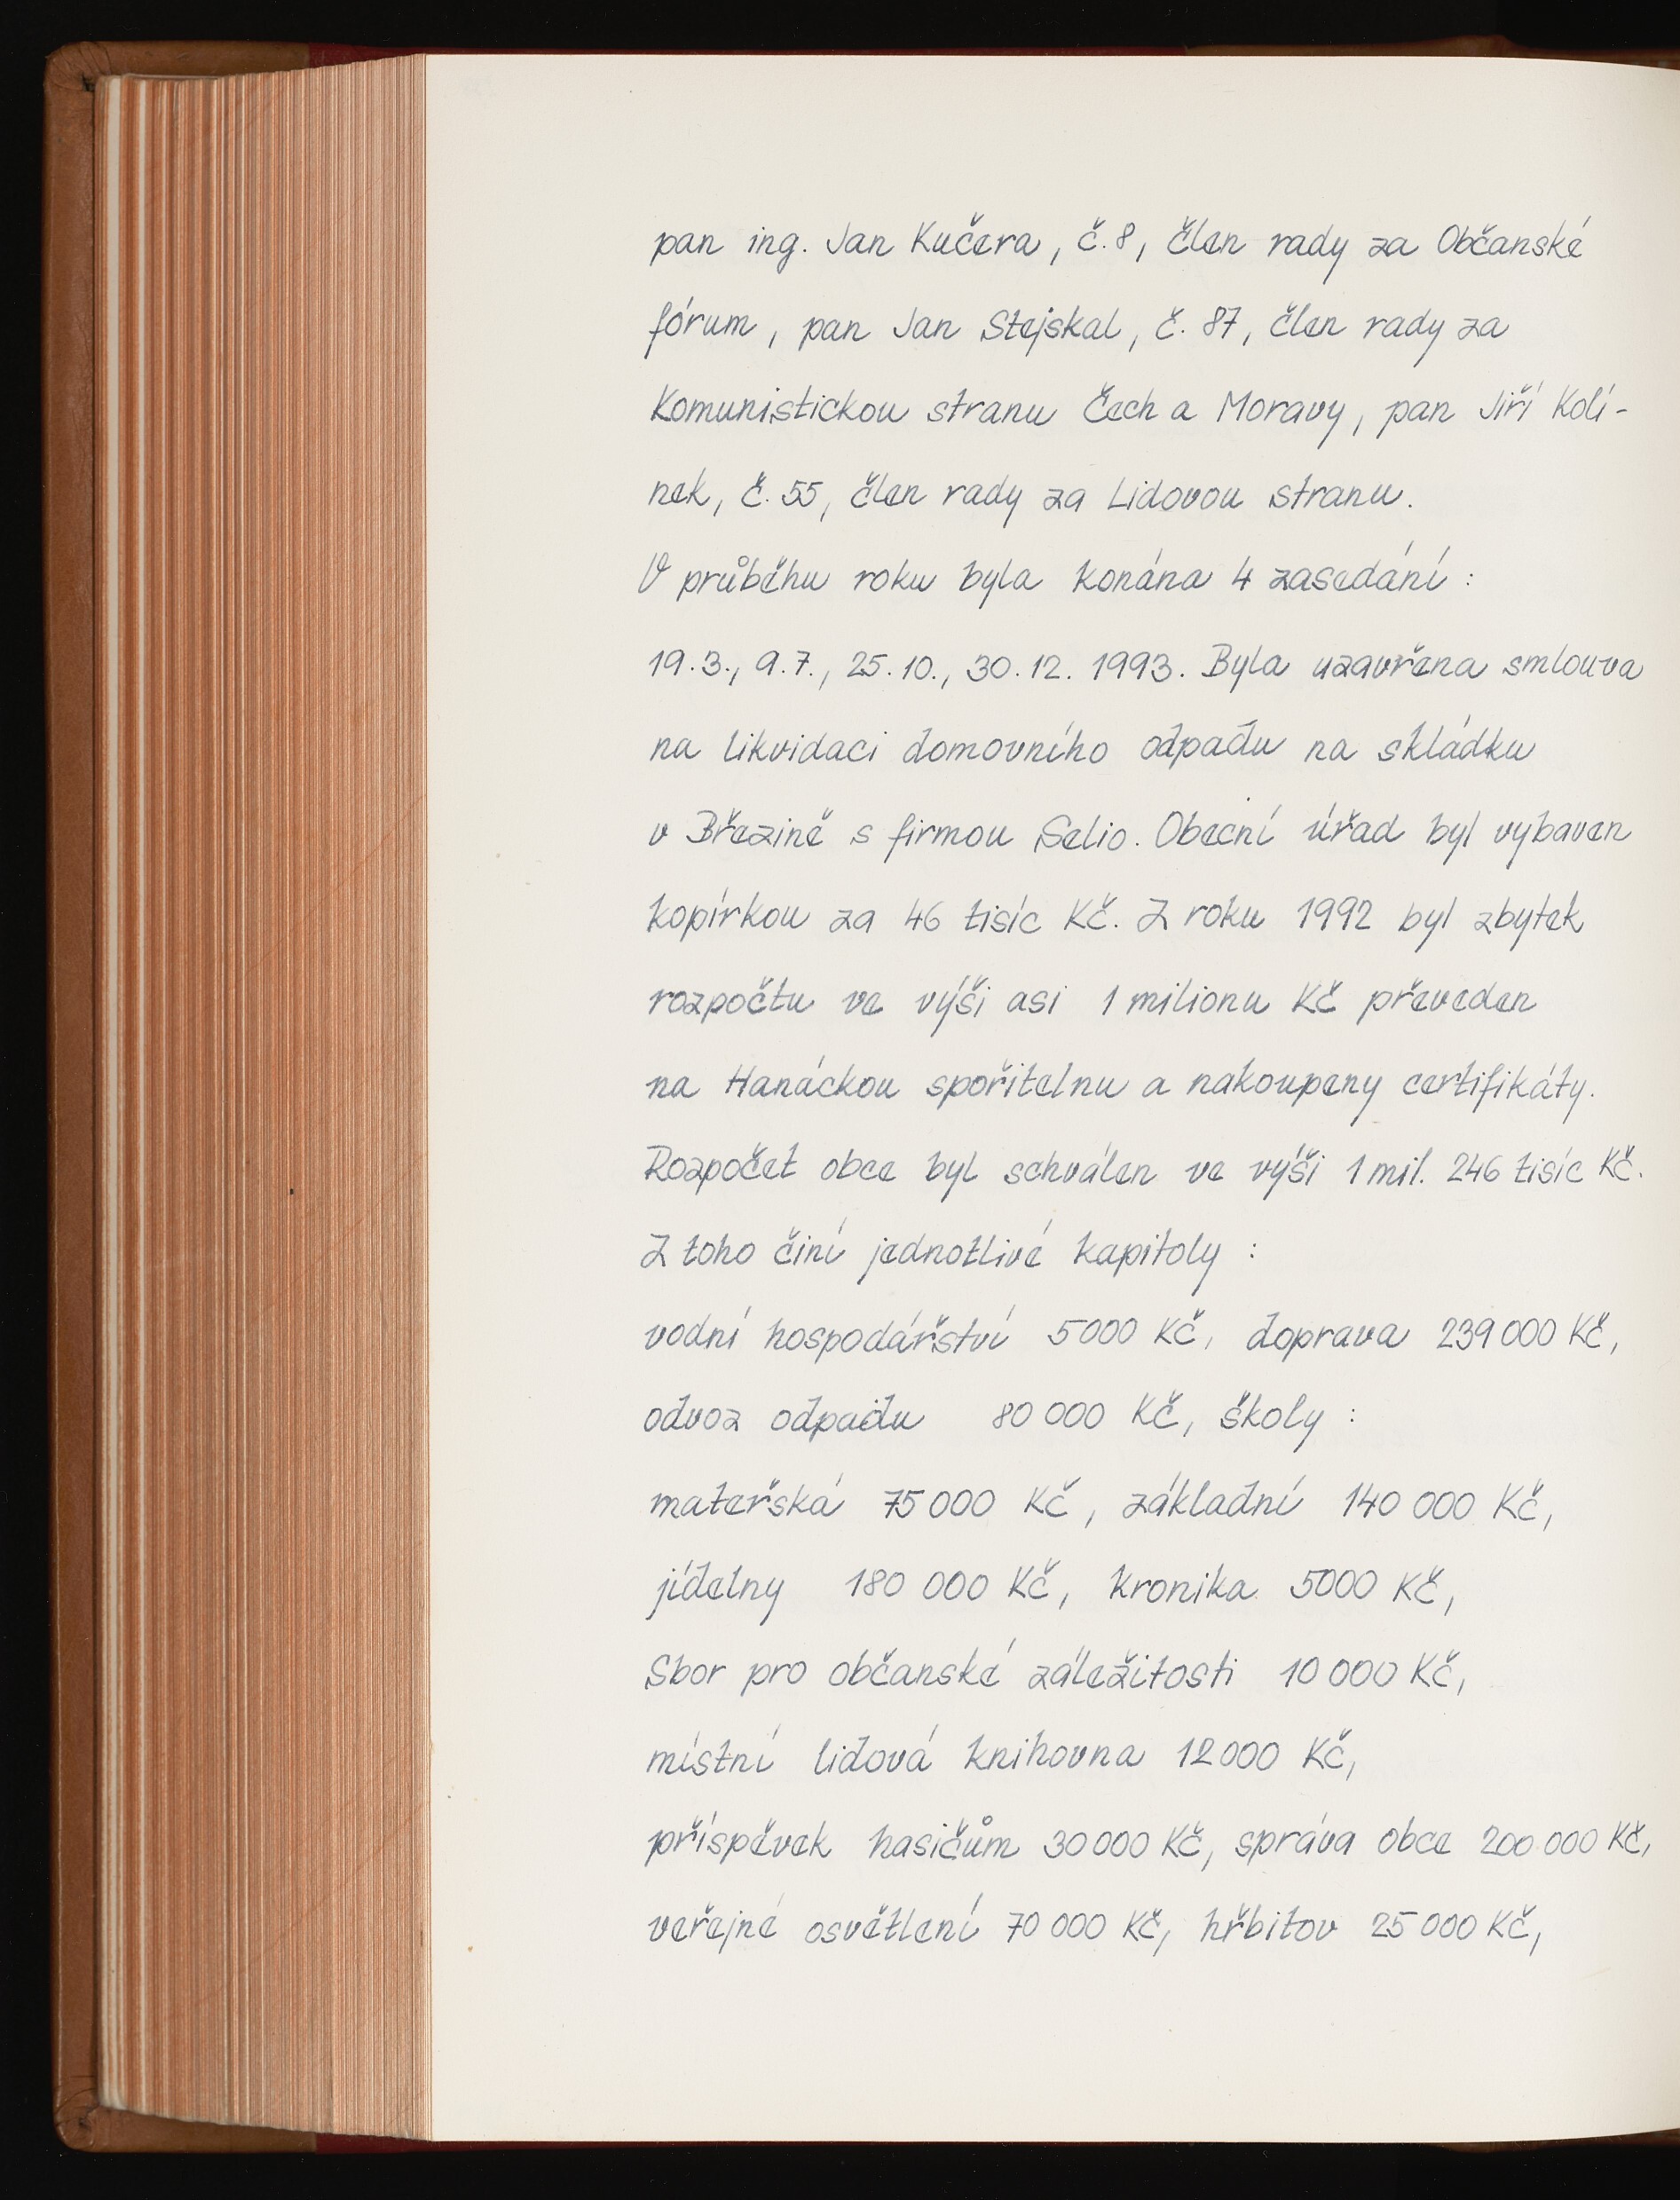 pan ing. Jan Kučera, č. 8, člen rady za Občanské
fórum, pan Jan Stejskal, č. 87, člen rady za
Komunistickou stranu Čech a Moravy, pan Jiří Kolí-
nek, č. 55, člen rady za Lidovou stranu.
V průběhu roku byla konána 4 zasedání :
19.3., 9.7., 25.10., 30.12. 1993. Byla uzavřena smlouva
na likvidaci domovního odpadu na skládku
v Březině s firmou Selio. Obecní úřad byl vybaven
kopírkou za 46 tisíc Kč. Z roku 1992 byl zbytek
rozpočtu ve výši asi 1 milionu Kč převeden
na Hanáckou spořitelnu a nakoupeny certifikáty.
Rozpočet obce byl schválen ve výši 1 mil. 246 tisíc Kč.
Z toho činí jednotlivé kapitoly :
vodní hospodářství 5000 Kč, doprava 239 000 Kč,
odvoz odpadu 80 000 Kč, školy :
mateřská 75 000 Kč, základní 140 000 Kč,
jídelny 180 000 Kč, kronika 5000 Kč,
Sbor pro občanské záležitosti 10 000 Kč,
místní lidová knihovna 12 000 Kč,
příspěvek hasičům 30 000 Kč, správa obce 200 000 Kč,
veřejné osvětlení 70 000 Kč, hřbitov 25 000 Kč,